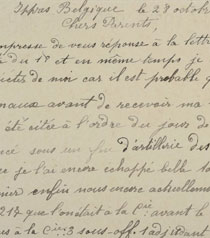 Ippas Belgique le 28 octob
Chers Parents,
mpresse de vous réponse à la lettr
du 1er et en même temps je
ctes de moi car il est probable q
naux avant de recevoir ma
été citée à l'ordre du jour de
cé sous un feu d'artillerie des
ce je l'ai encore échappé belle la
nier enfin nous avons actuellemen
217 que l'on était à la Cie avant le
s à la Cie 3 sous-off. 1 adjudant